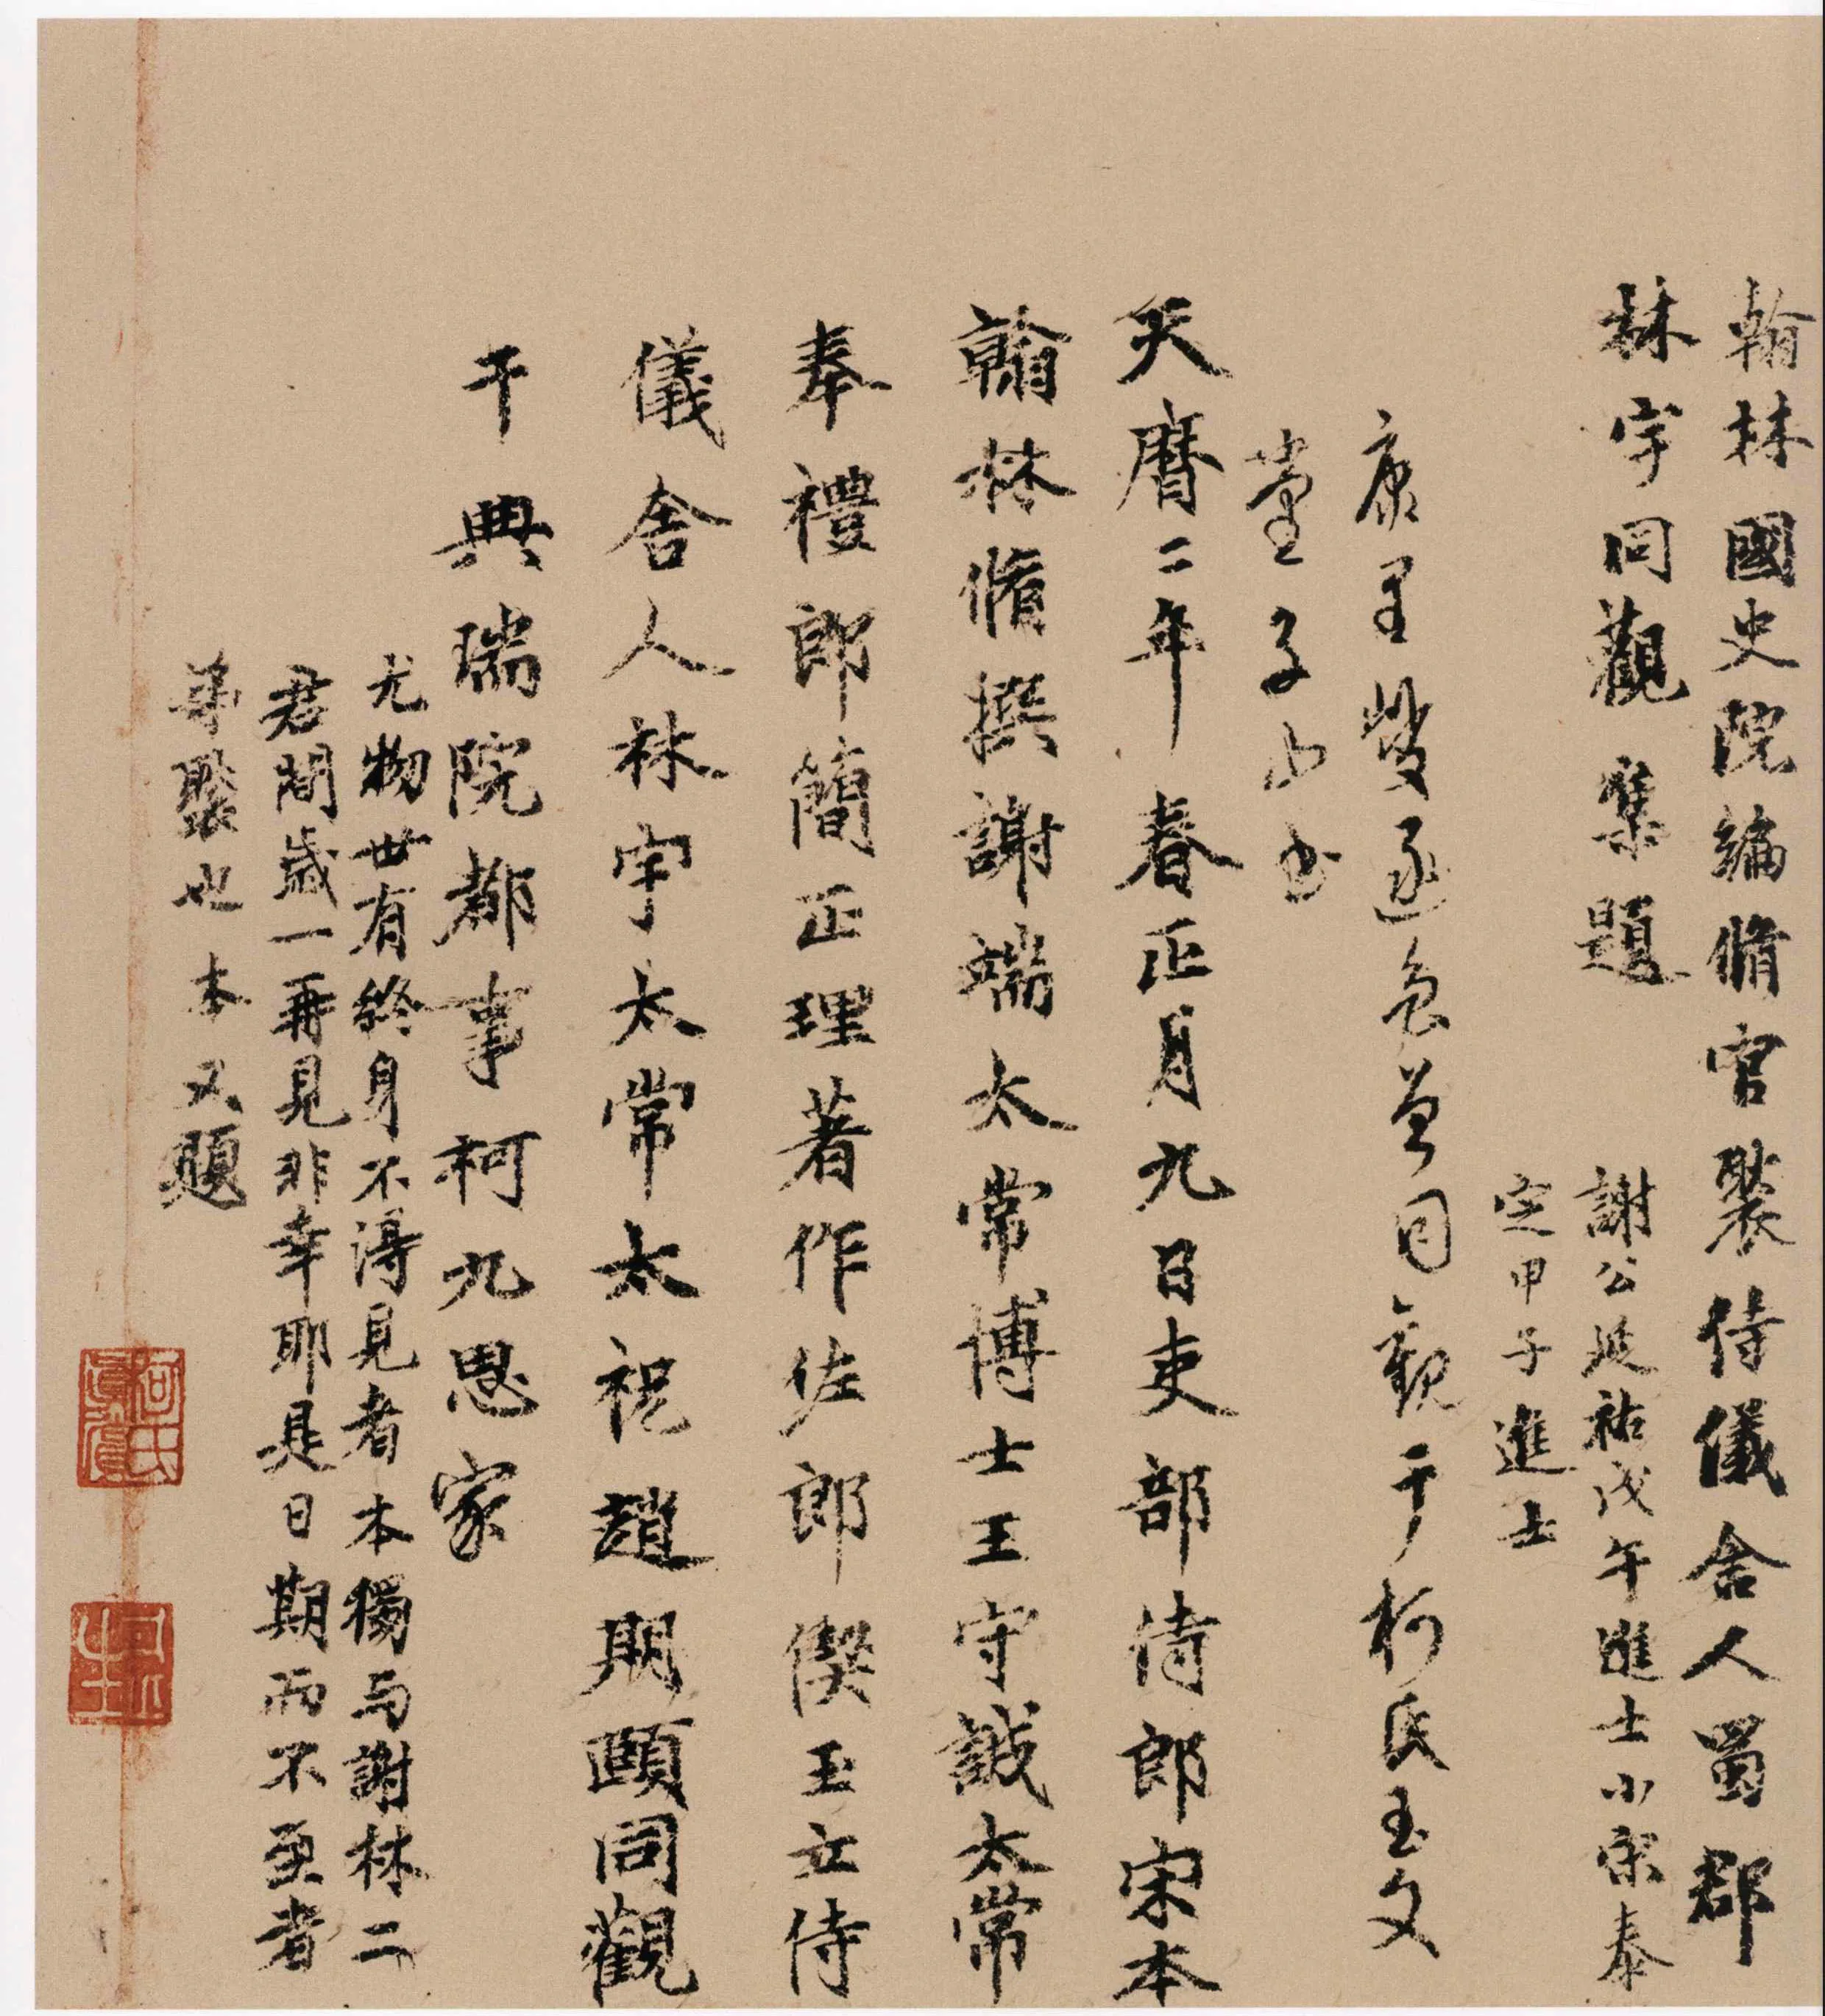 翰林國史院編脩官裝侍儀舍人蜀郡
林宇同觀 集題
謝公延祐戊午進士小宋泰
定甲子進士
康里巙遂色曾同觀于柯氏玉文
堂 子山書
天曆二年春正月九日吏部侍郎宋本
翰林脩撰謝端太常博士王守誠太常
奉禮郎簡正理著作佐郎偰玉立侍
儀舍人林宇太常太祝趙期頤同觀
于典瑞院都事柯九思家
尤物世有終身不得見者本獨与謝林二
君間歲一再見非幸耶是日期而不至者
弟褧也 本又題
柯氏真賞